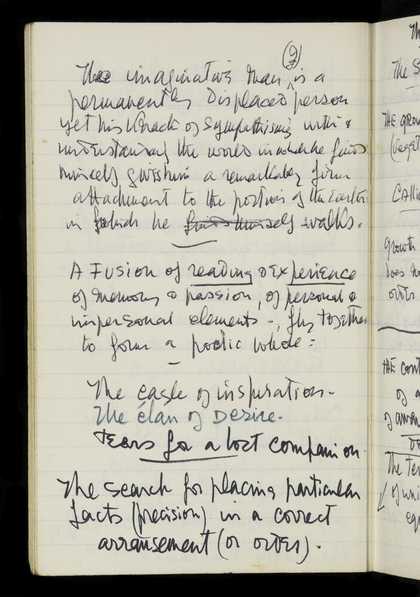 The imaginative man (?) is a
permanently displaced person
yet his knack of sympathising with &
understanding the world in which he finds
himself gives him a remarkably firm
attachment to the portion of the earth
in which he finds himself walks.
A Fusion of reading & experience
of memory & passion, of personal &
impersonal elements -, fly together
to form a poetic whole:
The eagle of inspiration.
The élan of Desire.
Tears for a lost companion.
The search for placing particular
facts (precision) in a correct
arrangement (or order).
The S
THE grow
Growth
does no
orbits
THE cont
of a
The Ter
of uni